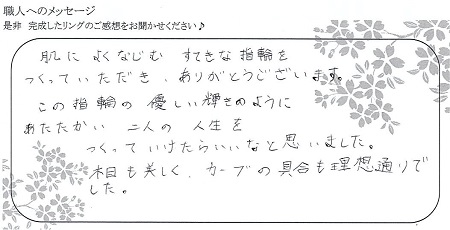 職人へのメッセージ
是非 完成したリングのご感想をお聞かせください♪
肌に よくなじむ すてきな指輪を
つくっていただき、ありがとうございます。
この指輪の 優しい輝きのように
あたたかい 二人の 人生を
つくっていけたらいいなと思いました。
木目も美しく、カーブの具合も理想通りで
した。